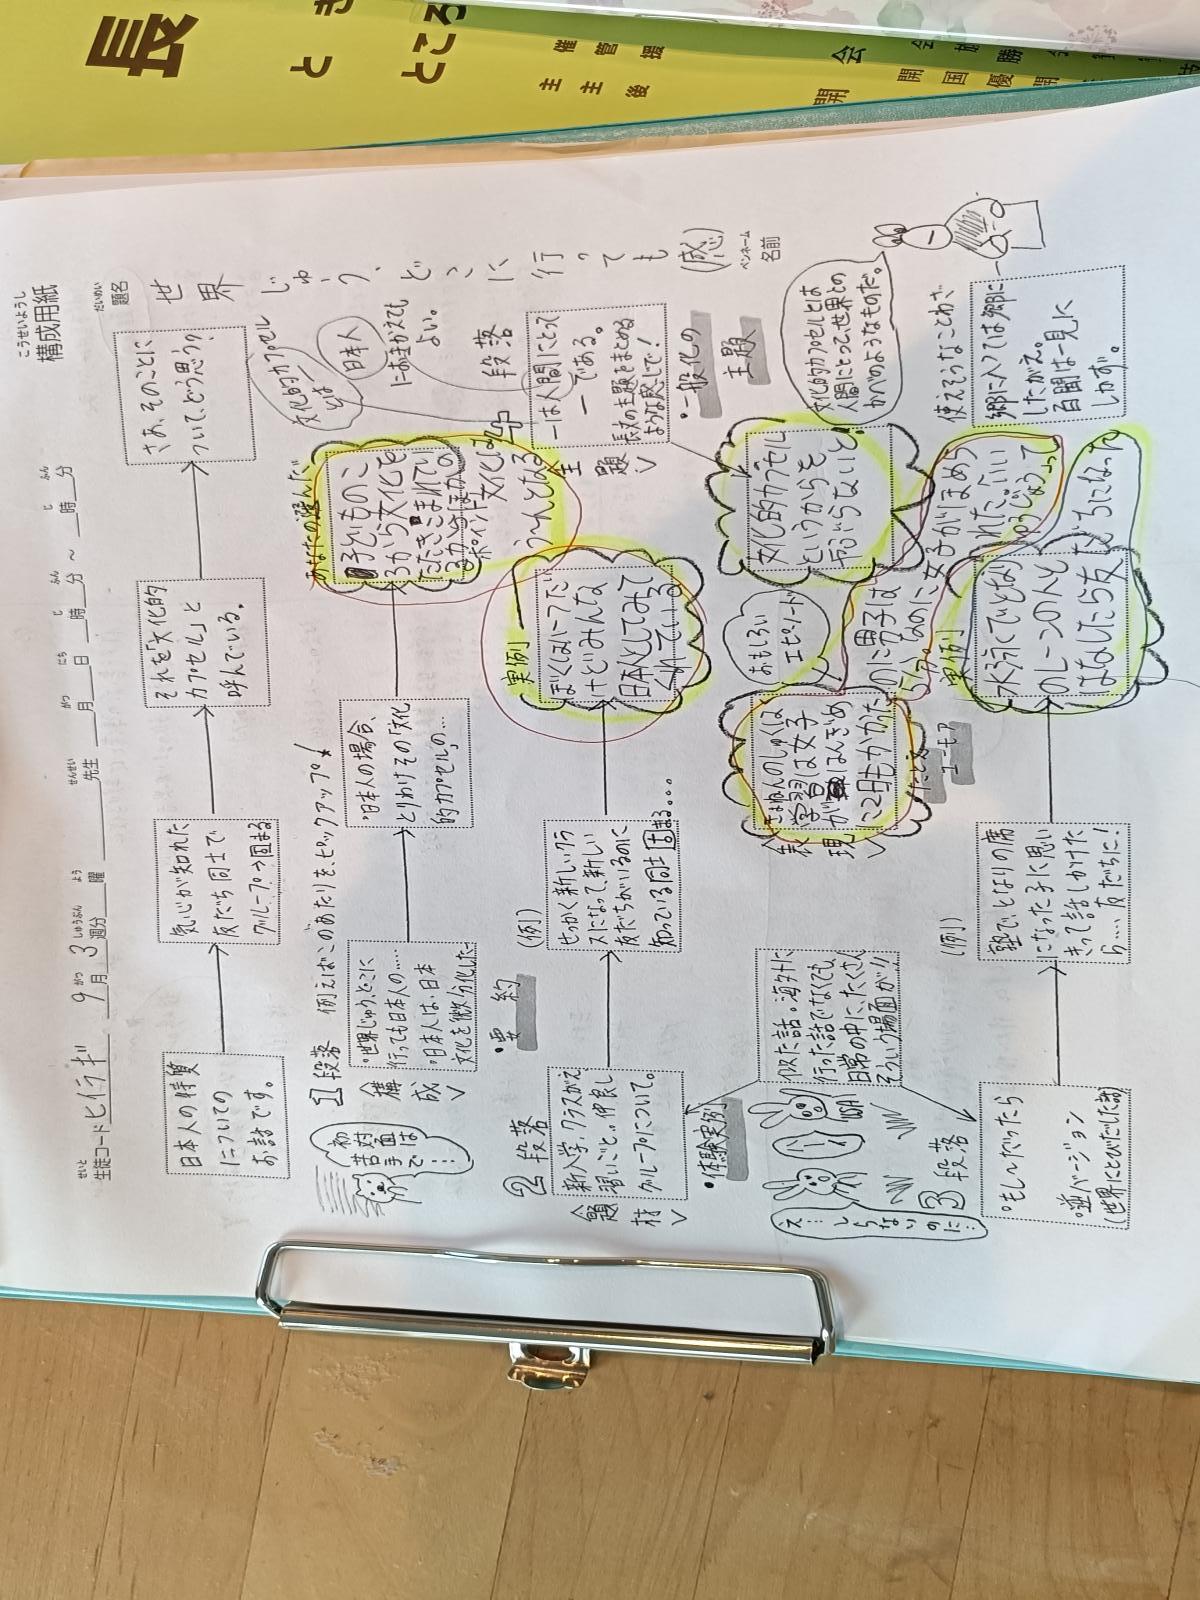 構成用紙
生徒コード ヒイラギ 9月3週分 曜 先生 月 日 時 分 ～ 時 分
題名
世界じゅう、どこに行っても(感)
ペンネーム
名前
日本人の特質
についての
お話です。
気心が知れた
友だち同士で
グループ→固まる
それを「文化的
カプセル」と
呼んでいる。
さあ、そのことに
ついて、どう思う?
1段落
例えばこのあたりをピックアップ!
〈構成〉
・世界じゅう、どこに
行っても日本人の……
・日本人は、日本
文化を微分化した…
・日本人の場合、
とりわけその「文化
的カプセル」の…
あなたの選んだ
子どものこ
ろから文化を
たたきこまれてい
・要約
初対面は
苦手で
…
2段落
〈題材〉
新入学、クラスがえ、
習いごと…仲良し
グループについて。
(例)
せっかく新しいクラ
スになって、新しい
友だちがいるのに
知っている同士固まる…
実例
ぼくはハーフだ
けどみんな
日本人としてみて
くれている。
・体験実例
似た話。海外に
行った話でなくても、
日常の中に、たくさん
そういう場面が!!
え…しらないのに…
3段落
・もし〜だったら
・逆バージョン
(世界にとびだした話)
(例)
塾でとなりの席
になった子に思い
きって話しかけた
ら…、友だちに!
実例
水えいでとなり
のレーンの人と
はなしたら友
だちになった
〈表現〉
きょねんのしゅくは
く学習は女子
がはんぎめ
に2日もかかった
のに男子は
5分。
なのに女子がほめら
れた。
たとえ
ユーモア
おもしろい
エピソード
4段落
〈主題〉
文化的カプセルとは
日本人
におきかえても
よい。
―は人間にとって
―である。
長文の主題をまとめる
ような感じで!
・一般化の
主題
文化的カプセル
というからを
やぶらないと。
文化的カプセルとは
人間にとって、世界との
かべのようなものだ。
使えそうなことわざ
郷に入っては郷に
したがえ。
百聞は一見に
しかず。
長
とき
ところ
主催
主管
後援